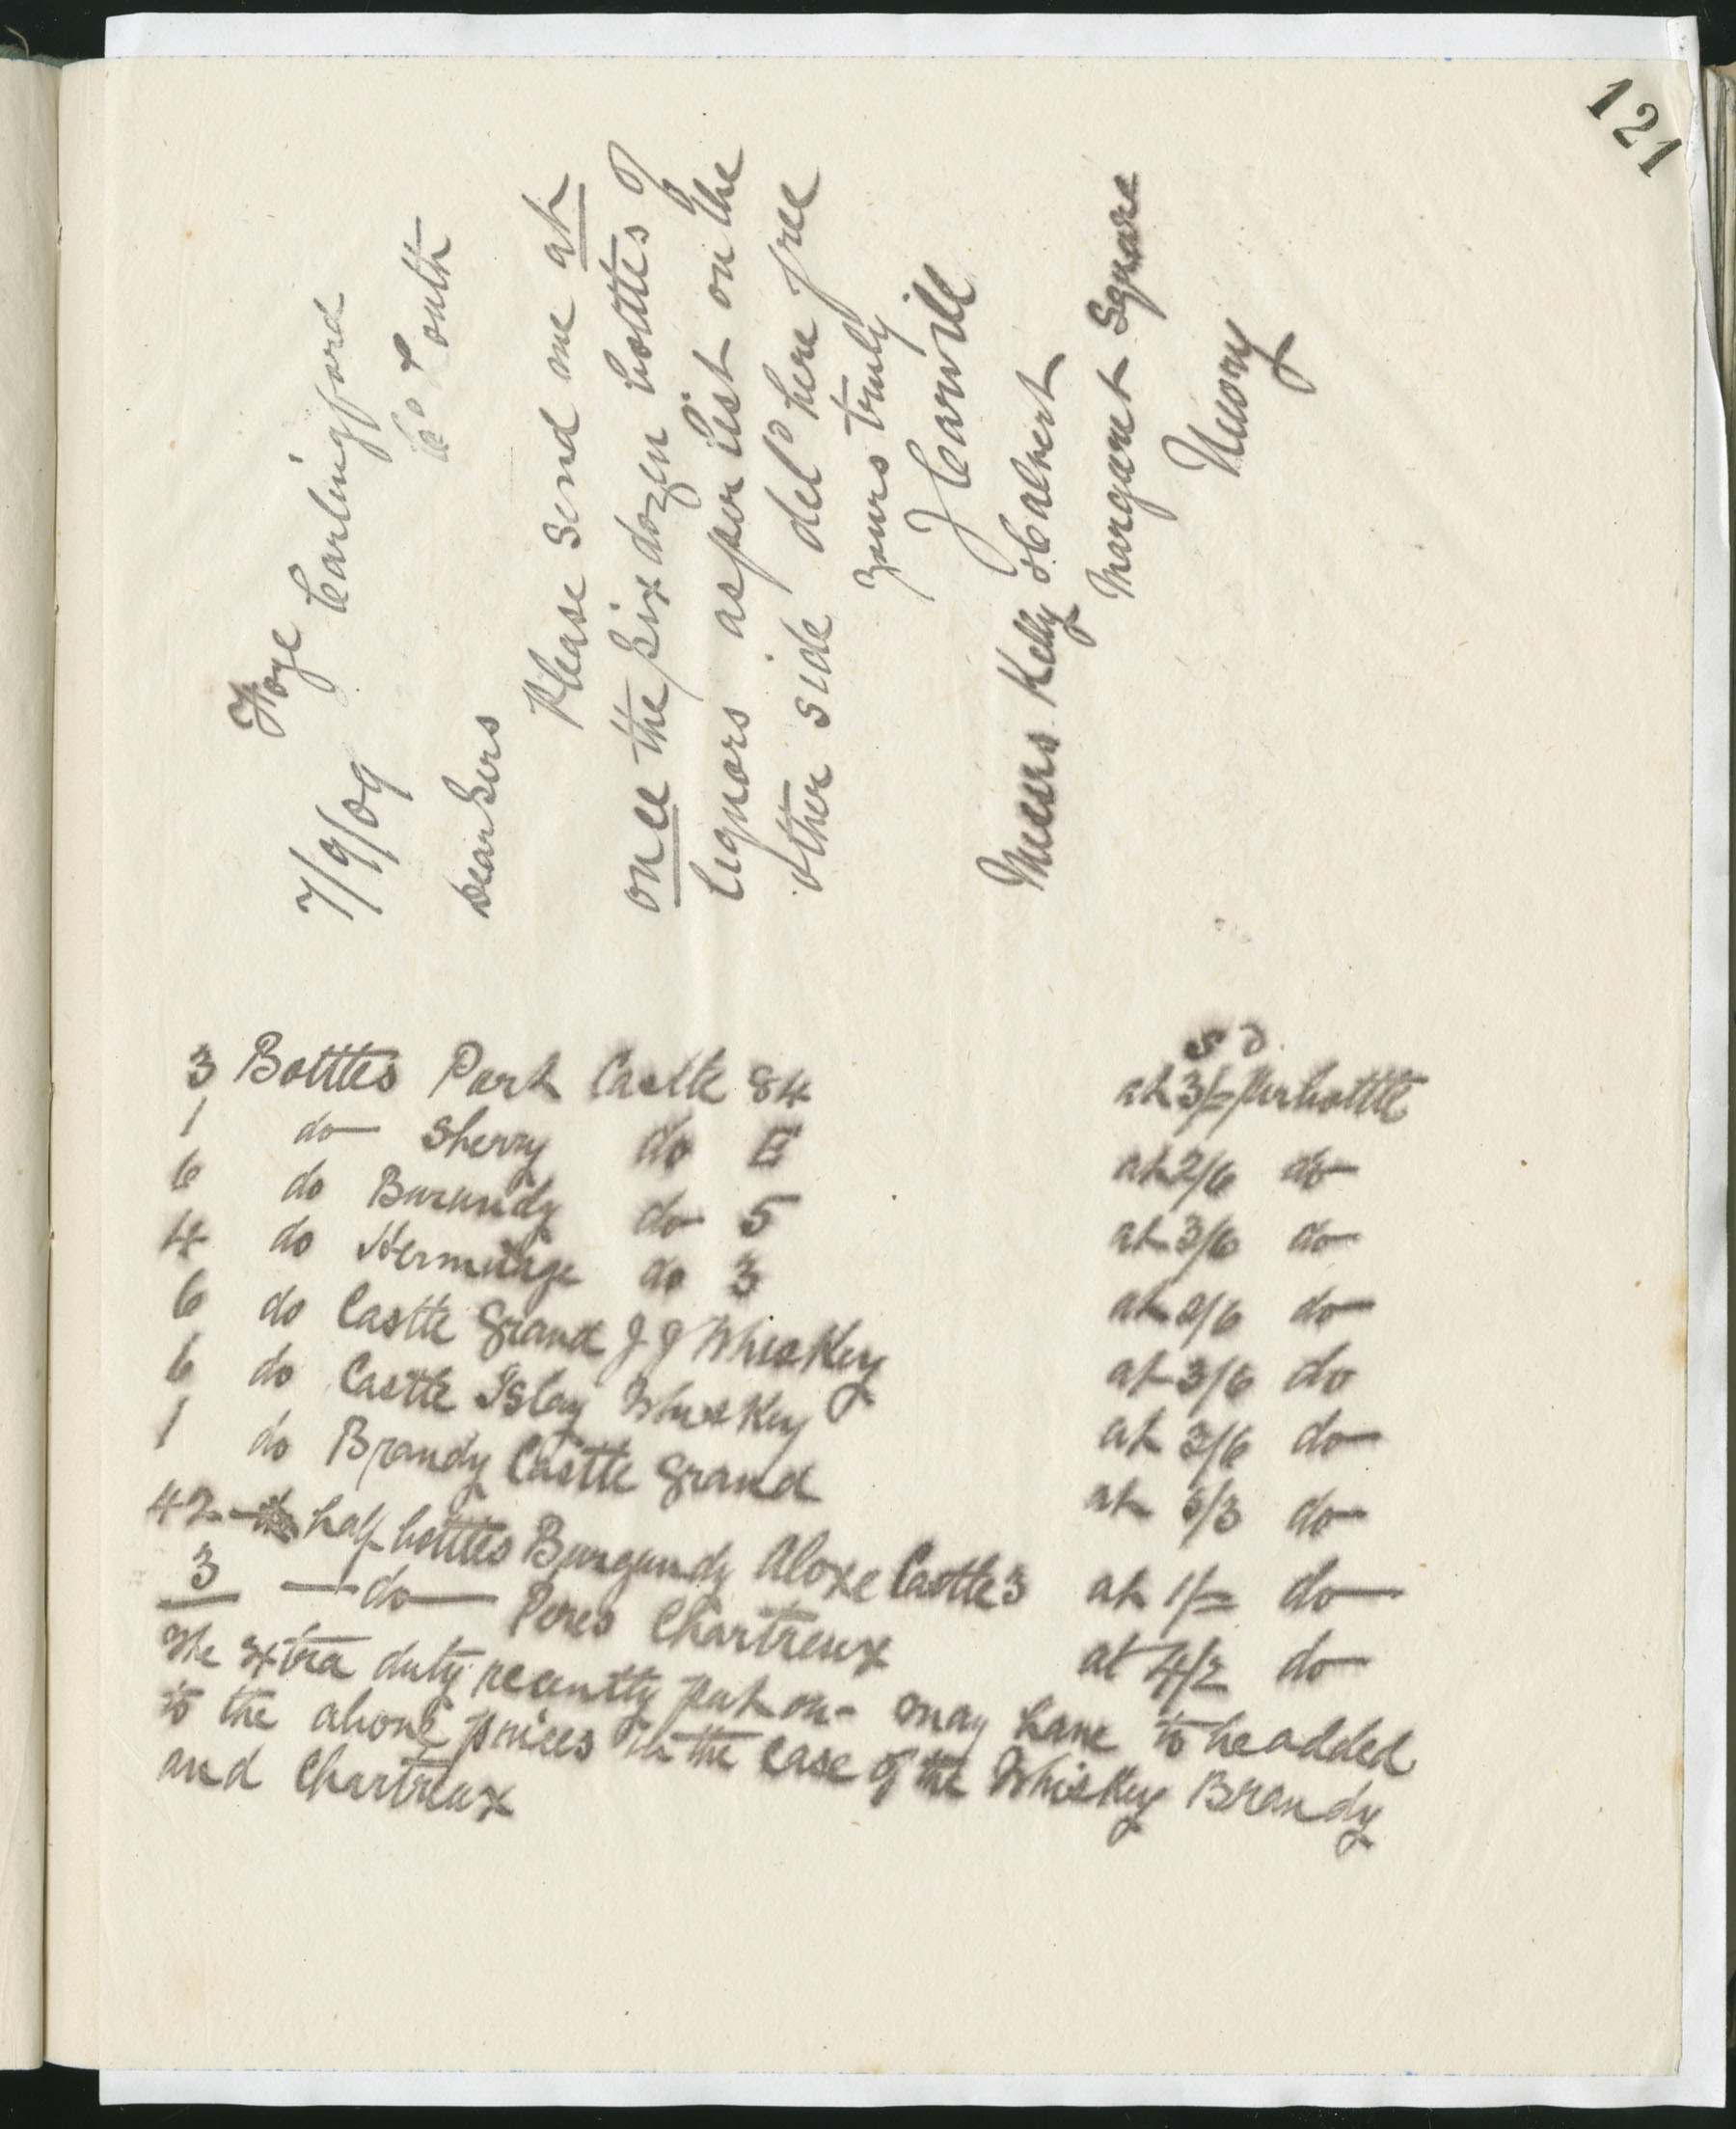 121
Foge Carlingford
Co Louth
7/9/09
Dear Sirs
Please send me at
once the six dozen bottles of
liquors as per list on the
other side deld here free
yours truly
J Carvill
Messrs Kelly & Calvert
Margaret Square
Newry
s d
3 Bottles Port Castle 84 at 3/= per bottle
1 do Sherry do E at 2/6 do
6 do Burundy do 5 at 3/6 do
4 do Hermitage do 3 at 2/6 do
6 do Castle Grand J J Whiskey at 3/6 do
6 do Castle Islay Whiskey at 3/6 do
1 do Brandy Castle Grand at 5/3 do
42 half bottles Burgundy Aloxe Castle 3 at 1/= do
3 do Peres Chartreux at 4/2 do
The xtra duty recently put on - may have to be added
to the above prices in the case of the Whiskey Brandy
and Chartreux